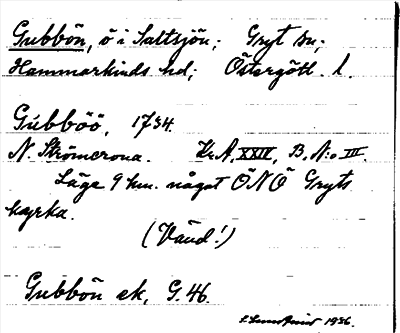 Gubbön, ö i Saltsjön; Gryt sn;
Hammarkinds hd; Östergötl. l.
Gubböö, 1734.
N. Strömcrona. Kr.A, XXIV, B, N:o III.
Läge 9 km. något ÖNÖ Gryts
kyrka.
(Vänd!)
Gubbön ek, G. 46.
1936.